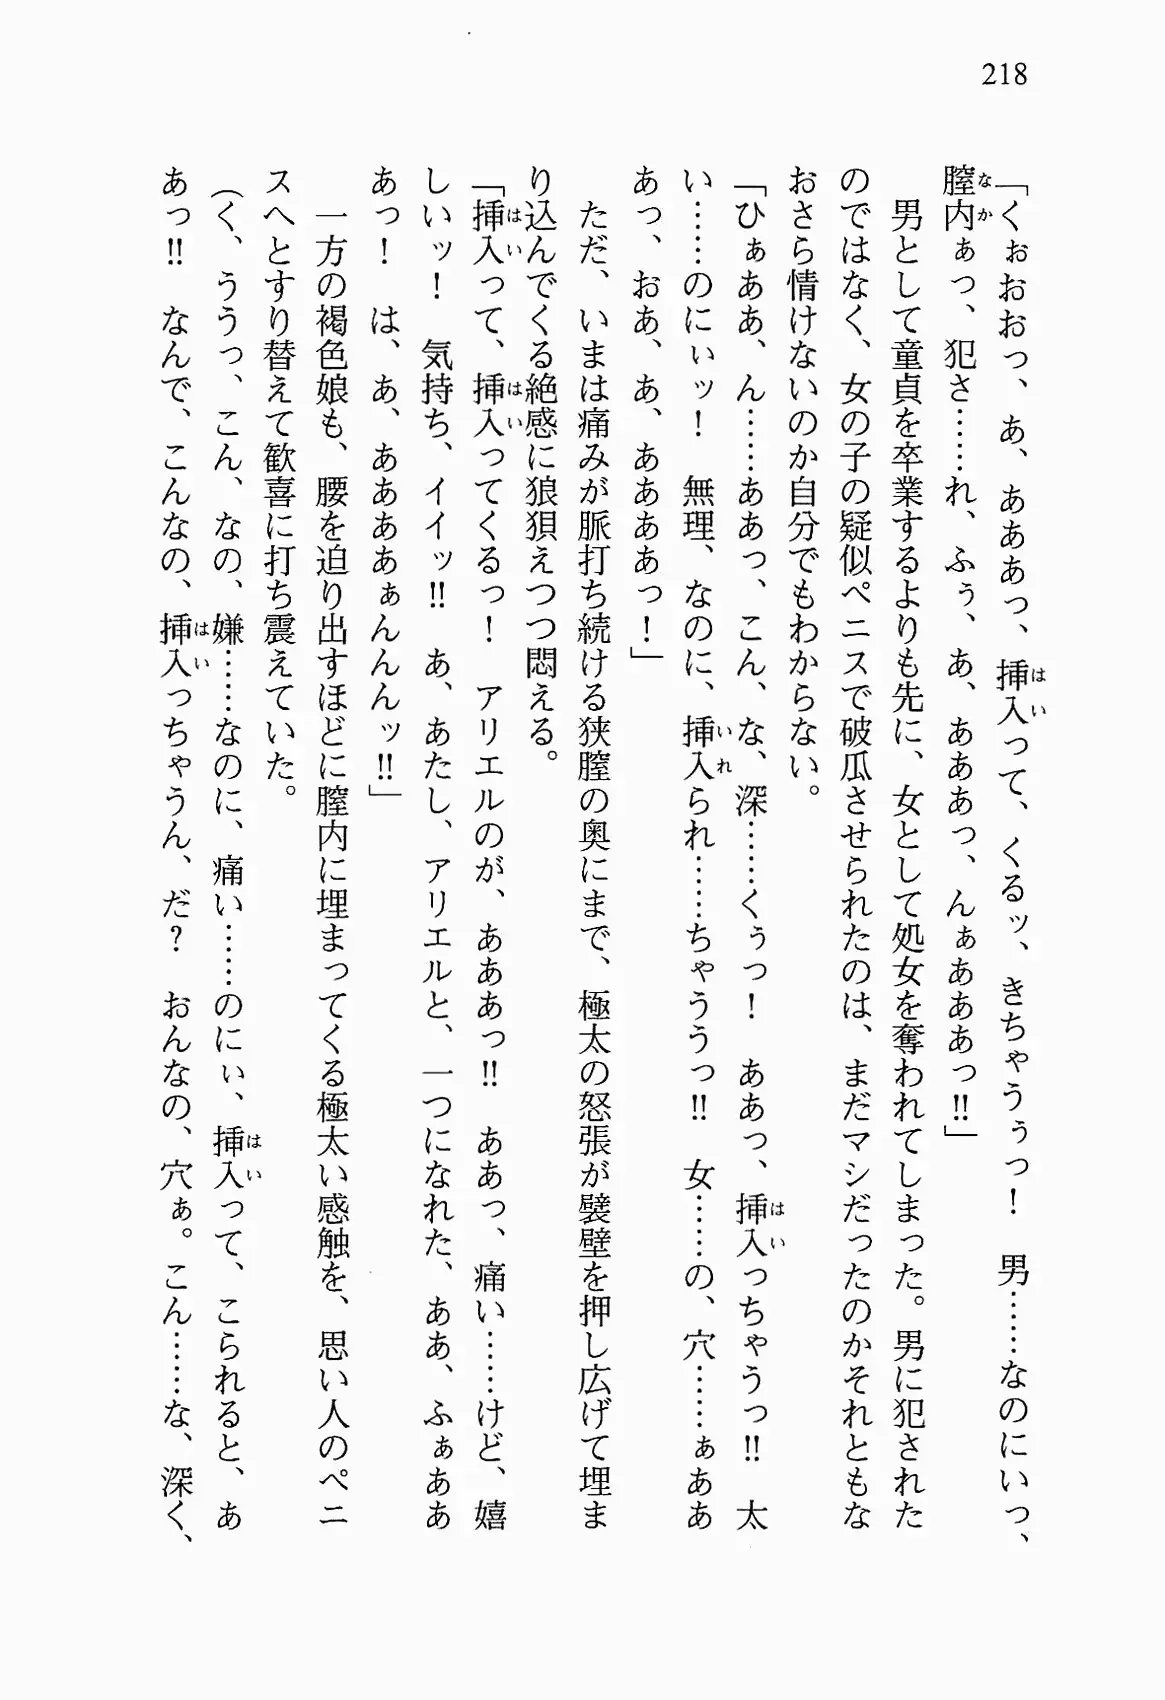 218
「くぉおおっ、あ、あああっ、挿入って、くるッ、きちゃうぅっ！　男……なのにいっ、
膣内ぁっ、犯さ……れ、ふぅ、あ、あああっ、んぁあああっ‼」
　男として童貞を卒業するよりも先に、女として処女を奪われてしまった。男に犯された
のではなく、女の子の疑似ペニスで破瓜させられたのは、まだマシだったのかそれともな
おさら情けないのか自分でもわからない。
「ひぁああ、ん……ああっ、こん、な、深……くぅっ！　ああっ、挿入っちゃうっ‼　太
い……のにぃッ！　無理、なのに、挿入られ……ちゃううっ‼　女……の、穴……ぁああ
あっ、おあ、あ、ああああっ！」
　ただ、いまは痛みが脈打ち続ける狭膣の奥にまで、極太の怒張が襞壁を押し広げて埋ま
り込んでくる絶感に狼狽えつつ悶える。
「挿入って、挿入ってくるっ！　アリエルのが、あああっ‼　ああっ、痛い……けど、嬉
しいッ！　気持ち、イイッ‼　あ、あたし、アリエルと、一つになれた、ああ、ふぁああ
あっ！　は、あ、ああああぁんんんッ‼」
　一方の褐色娘も、腰を迫り出すほどに膣内に埋まってくる極太い感触を、思い人のペニ
スへとすり替えて歓喜に打ち震えていた。
（く、ううっ、こん、なの、嫌……なのに、痛い……のにぃ、挿入って、こられると、あ
あっ‼　なんで、こんなの、挿入っちゃうん、だ？　おんなの、穴ぁ。こん……な、深く、